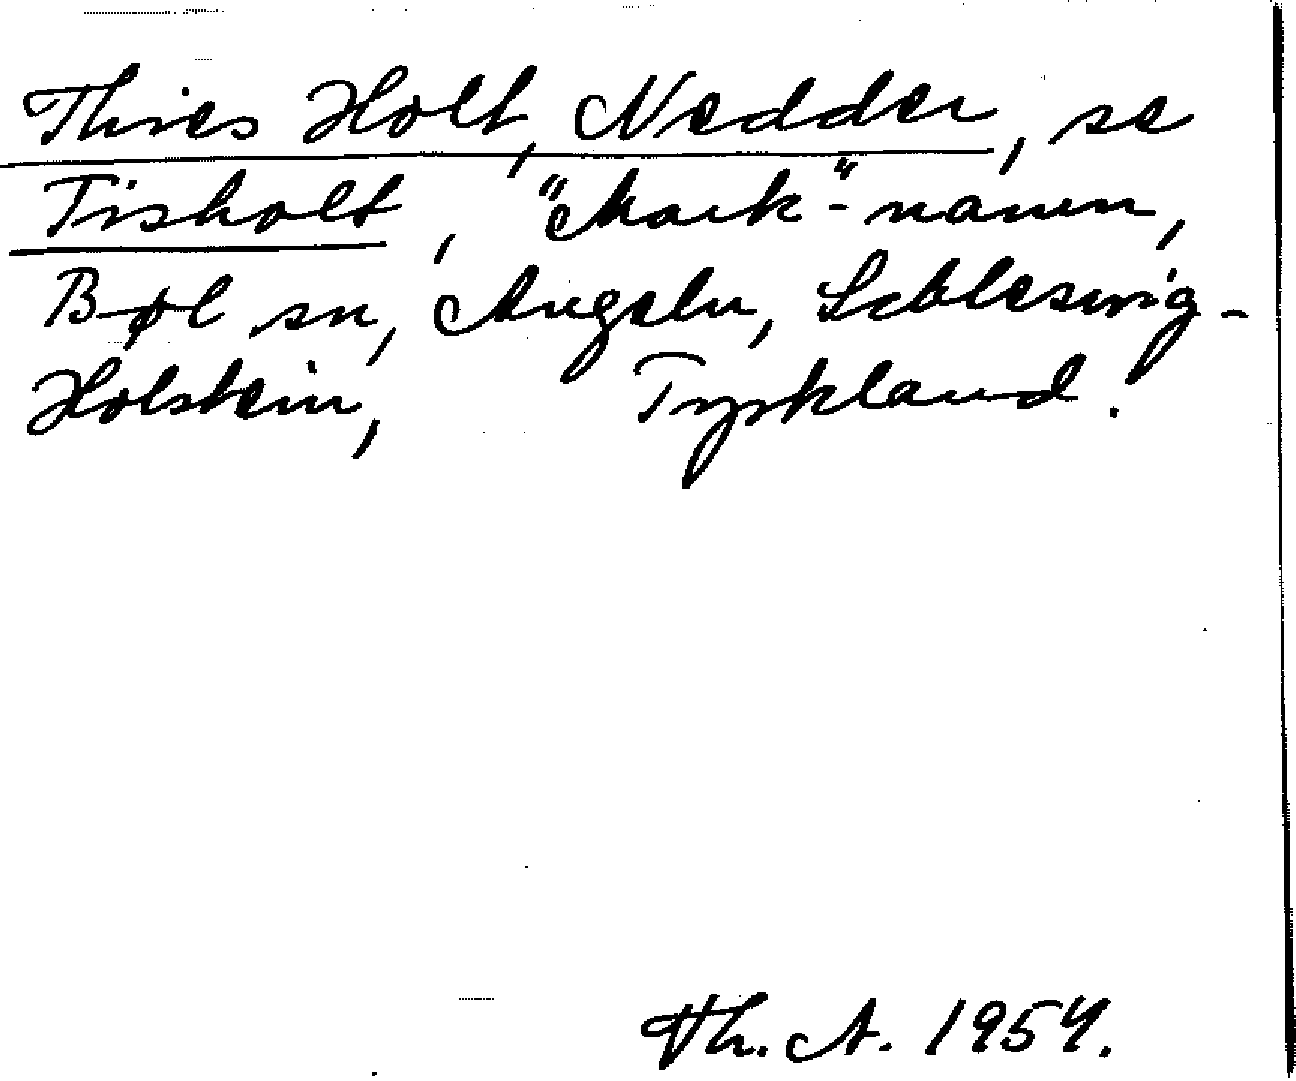 Thies Holt, Nedder, se
Tisholt, "Mark"-namn,
Bøl sn, Angeln, Schleswig-
Holstein, Tyskland.
Th. A. 1954.